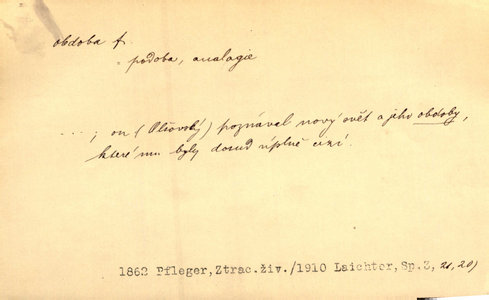 obdoba f.
podoba, analogie
...; on (Olšovský) poznával nový svět a jeho obdoby,
které mu byly dosud úplně cizí.
1862 Pfleger,Ztrac.živ./1910 Laichter,Sp.3, 21, 20)